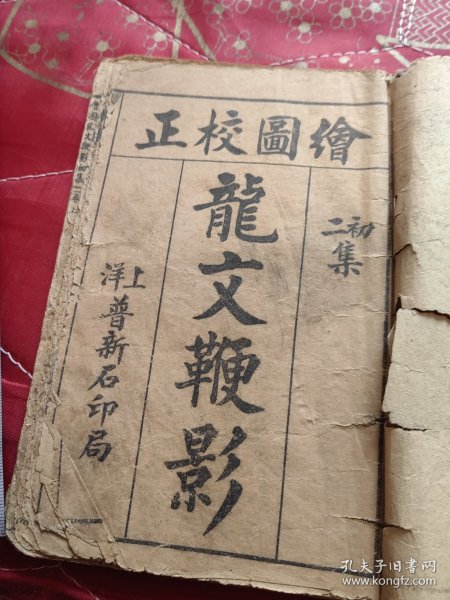 繪圖校正
初二集
龍文鞭影
上洋普新石印局
孔夫子旧书网
www.kongfz.com